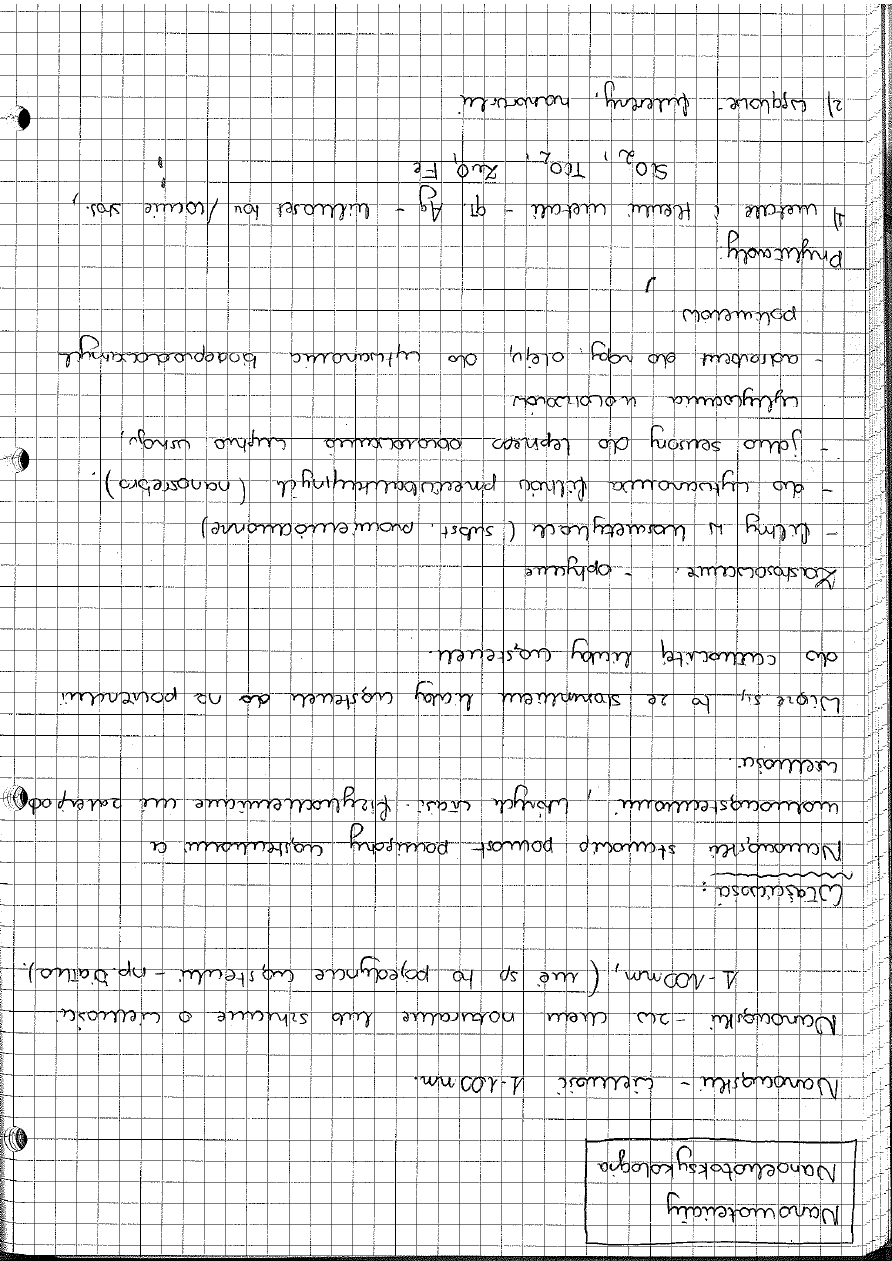 Nanomateriały
Nanoekotoksykologia
Nanocząstki - wielkość 1-100 nm.
Nanocząstki - zw. chem. naturalne lub sztuczne o wielkości
1-100 nm, (nie są to pojedyncze cząsteczki - np. białko).
Właściwości:
Nanocząstki stanowią pomost pomiędzy cząsteczkami a
makrocząsteczkami, których właśc. fizykochemiczne nie zależą od
wielkości.
Wiąże się to ze stosunkiem liczby cząsteczek do na powierzchni
do całkowitej liczby cząsteczek.
Zastosowanie: - optyczne
- filtry w kosmetykach (subst. promieniochronne)
- do wytwarzania filtrów przeciwbakteryjnych (nanosrebro).
- jako sensory do lepszego obrazowania wnętrza,
wykrywania nowotworów
- adsorbent do ropy, oleju, do wytwarzania bioprzewodzących
polimerów
Przykłady:
1) metale i tlenki metali - np. Ag -
SiO2, TiO2, ZnO, Fe
2) węglowe - fulereny, nanorurki